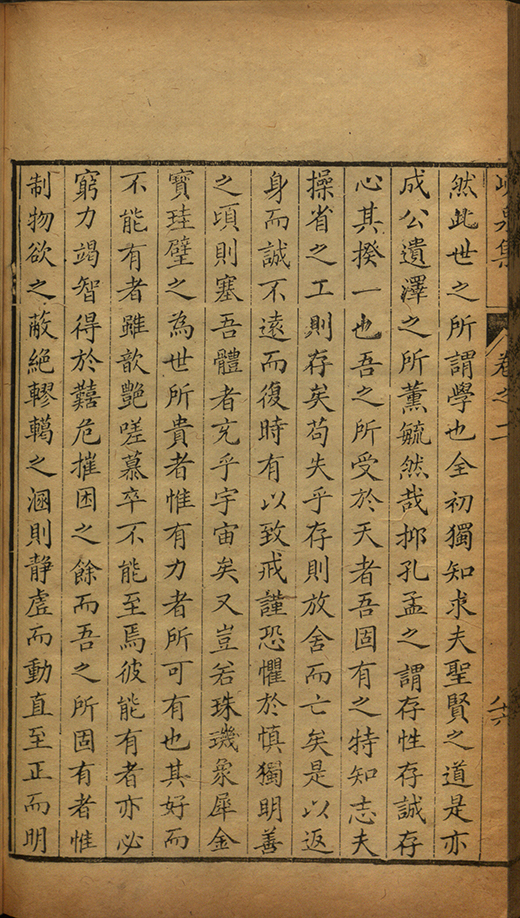 峴泉集 卷之二 八六
然此世之所謂學也全初獨知求夫聖賢之道是亦
成公遺澤之所薰毓然哉抑孔孟之謂存性存誠存
心其揆一也吾之所受於天者吾固有之特知志夫
操省之工則存矣苟失乎存則放舍而亡矣是以返
身而誠不遠而復時有以致戒謹恐懼於慎獨明善
之頃則塞吾體者充乎宇宙矣又豈若珠璣象犀金
寶珪璧之為世所貴者惟有力者所可有也其好而
不能有者雖歆艷嗟慕卒不能至焉彼能有者亦必
窮力竭智得於囏危摧困之餘而吾之所固有者惟
制物欲之蔽絕轇轕之溷則静虛而動直至正而明